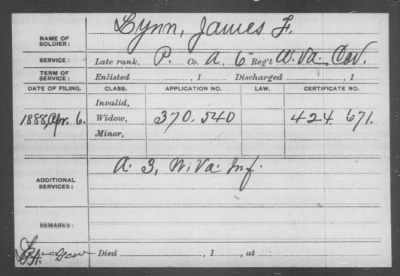 NAME OF SOLDIER: Lynn, James F.
SERVICE: Late rank, P. Co. A, 6" Reg't W. Va. Cav.
TERM OF SERVICE: Enlisted , 1 Discharged , 1
DATE OF FILING. CLASS. APPLICATION NO. LAW. CERTIFICATE NO.
Invalid,
1888, Apr. 6. Widow, 370.540 424 671.
Minor,
ADDITIONAL SERVICES: A. 3, W. Va. Inf.
REMARKS:
Died , 1 , at